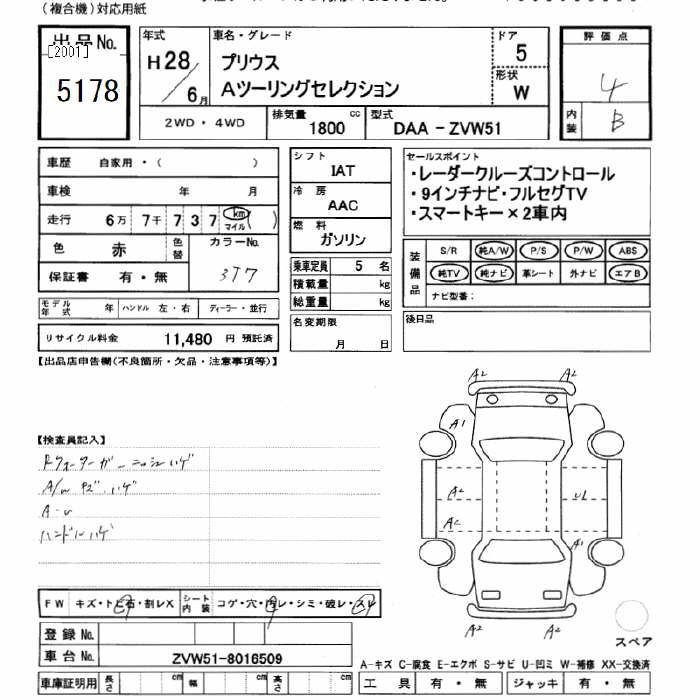 (複合機)対応用紙
出品No.
[2001]
5178
年式
H28/6月
車名・グレード
プリウス
Aツーリングセレクション
ドア
5
形状
W
評価点
4
内装
B
2WD・4WD
排気量 1800 cc
型式 DAA-ZVW51
車歴 自家用・( )
車検 年 月
走行 6万 7千 7 3 7 km マイル ( )
色 赤 色替 カラーNo. 3T7
保証書 有・無
モデル年式 年 ハンドル 左・右 ディーラー・並行
リサイクル料金 11,480 円 預託済
シフト
IAT
冷房
AAC
燃料
ガソリン
乗車定員 5 名
積載量 kg
総重量 kg
名変期限
月 日
セールスポイント
・レーダークルーズコントロール
・9インチナビ・フルセグTV
・スマートキー×2車内
装備品
S/R 純A/W P/S P/W ABS
純TV 純ナビ 革シート 外ナビ エアB
ナビ型番:
後日品
【出品店申告欄(不良箇所・欠品・注意事項等)】
【検査員記入】
A/W キズ、ハゲ
ハンドルハゲ
A2 A2
A1
A2 U1
A2
A1
A2 A2
スペア
FW キズ・トビ石・割レX シート内装 コゲ・穴・汚レ・シミ・破レ・スレ
登録No.
車台No. ZVW51-8016509
車庫証明用 長さ cm 幅 cm 高さ cm
A-キズ C-腐食 E-エクボ S-サビ U-凹ミ W-補修 XX-交換済
工具 有・無 ジャッキ 有・無